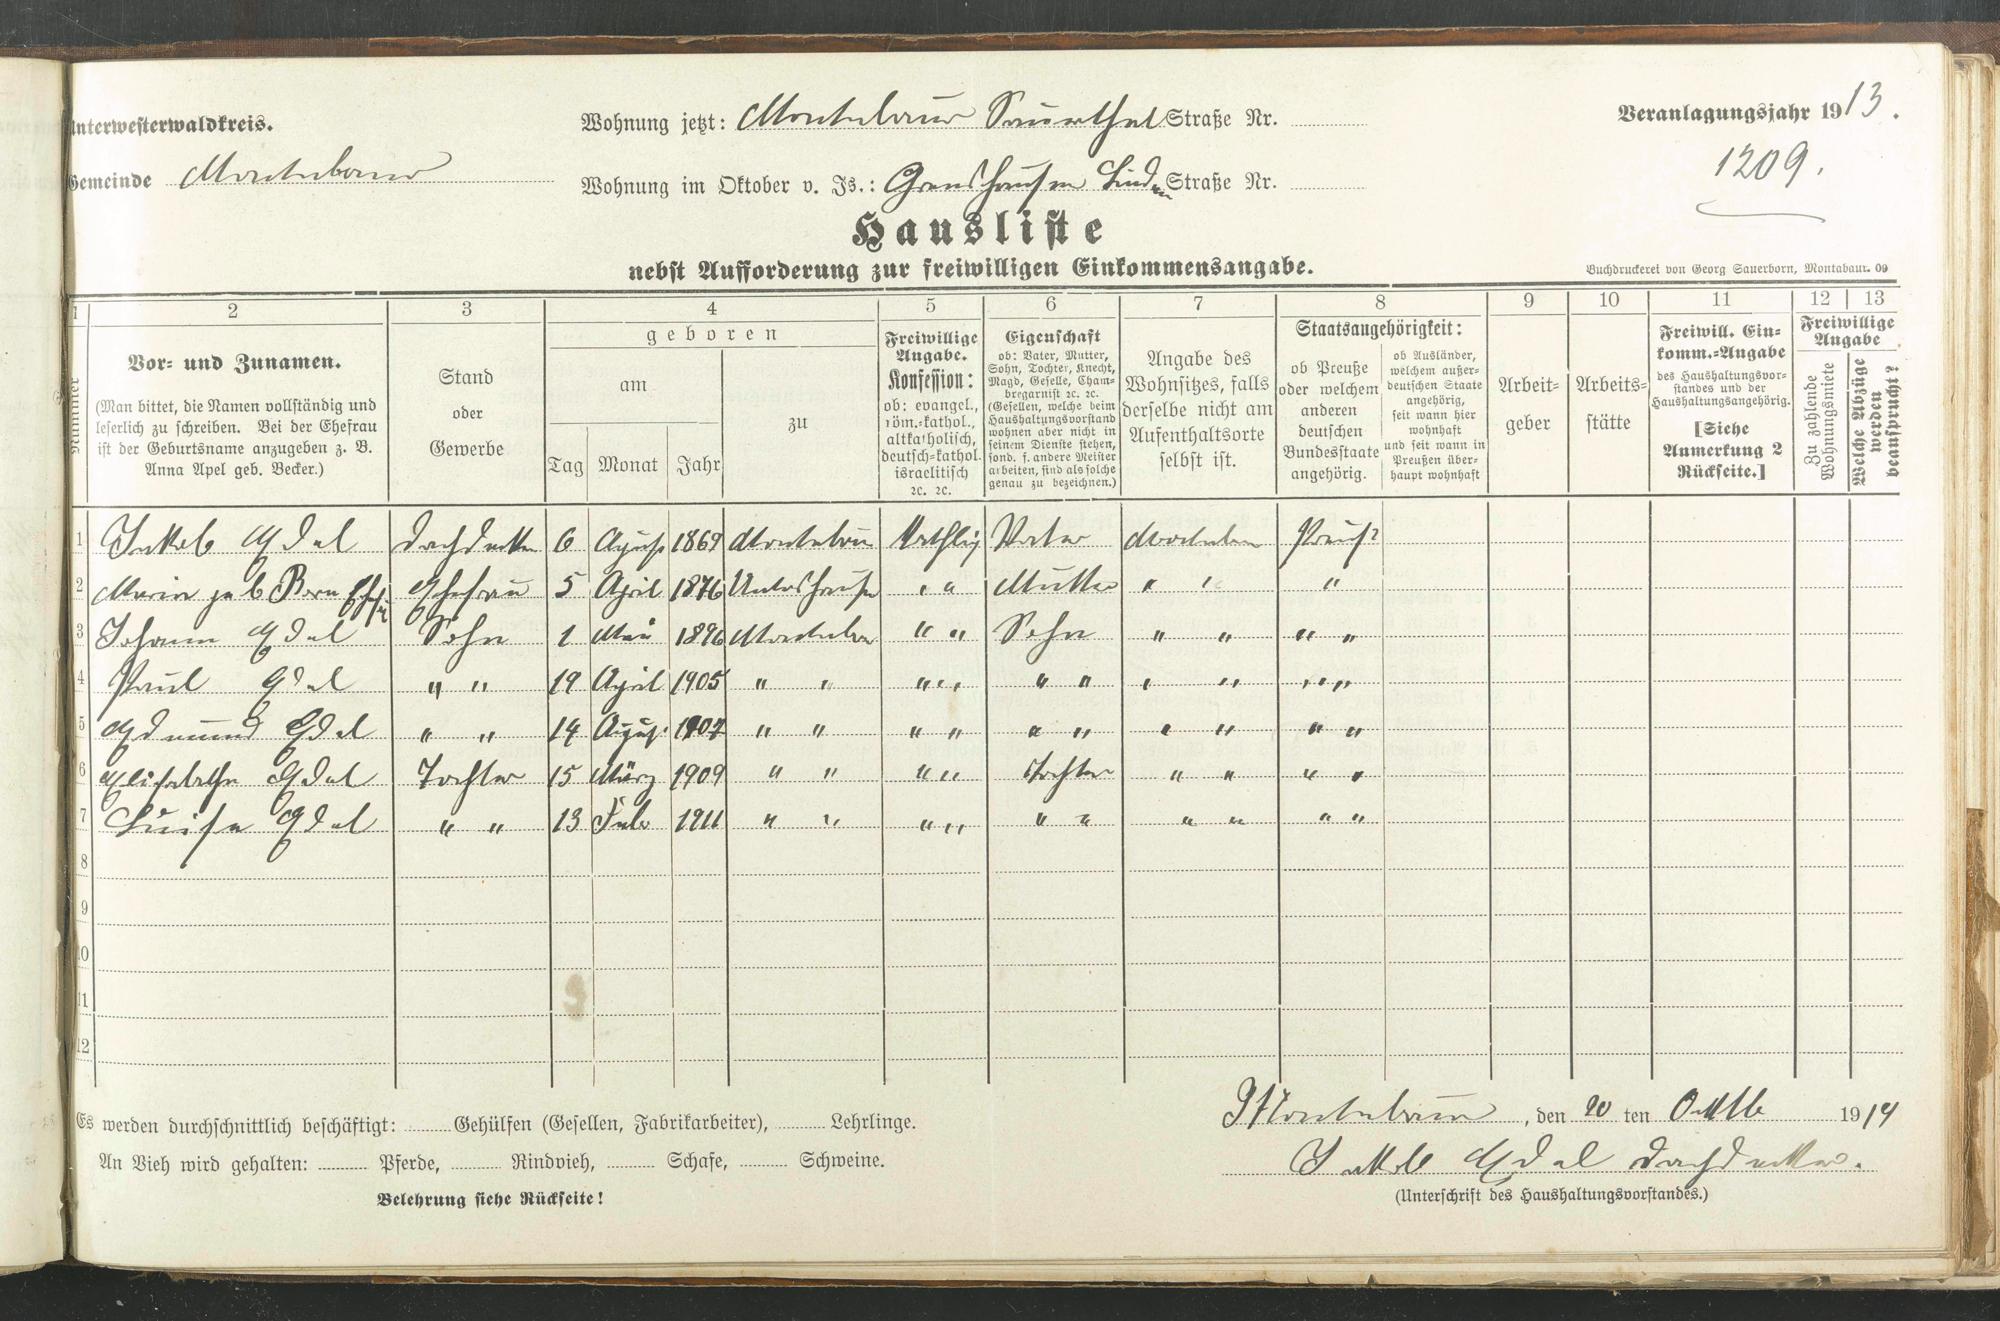 Unterwesterwaldkreis.
Wohnung jetzt: Montabaur Sauerthal Straße Nr.
Veranlagungsjahr 1913.
Gemeinde Montabaur
Wohnung im Oktober v. Js.: Grenshausen Linden Straße Nr.
1209.
Hausliste
nebst Aufforderung zur freiwilligen Einkommensangabe.
Buchdruckerei von Georg Sauerborn, Montabaur. 09
1 2 3 4 5 6 7 8 9 10 11 12 13
Nummer
Vor- und Zunamen.
(Man bittet, die Namen vollständig und
leserlich zu schreiben. Bei der Ehefrau
ist der Geburtsname anzugeben z. B.
Anna Apel geb. Becker.)
Stand
oder
Gewerbe
geboren
am
Tag Monat Jahr
zu
Freiwillige
Angabe.
Konfession:
ob: evangel.,
röm.-kathol.,
altkatholisch,
deutsch-kathol.
israelitisch
2c. 2c.
Eigenschaft
ob: Vater, Mutter,
Sohn, Tochter, Knecht,
Magd, Geselle, Cham-
bregarnist 2c. 2c.
(Gesellen, welche beim
Haushaltungsvorstand
wohnen aber nicht in
seinem Dienste stehen,
sond. f. andere Meister
arbeiten, sind als solche
genau zu bezeichnen.)
Angabe des
Wohnsitzes, falls
derselbe nicht am
Aufenthaltsorte
selbst ist.
Staatsangehörigkeit:
ob Preuße
oder welchem
anderen
deutschen
Bundesstaate
angehörig.
ob Ausländer,
welchem außer-
deutschen Staate
angehörig,
seit wann hier
wohnhaft
und seit wann in
Preußen über-
haupt wohnhaft
Arbeit-
geber
Arbeits-
stätte
Freiwill. Ein-
komm.-Angabe
des Haushaltungsvor-
standes und der
Haushaltungsangehörig.
[Siehe
Anmerkung 2
Rückseite.]
Freiwillige
Angabe
Zu zahlende
Wohnungsmiete
Welche Abzüge
werden
beansprucht?
1 Jakob Edel Dachdecker 6 August 1869 Montabaur Kathlig Vater Montabaur Preuß
2 Maria geb Born Ehefrau 5 April 1876 Untershausen " " Mutter " " "
3 Johann Edel Sohn 1 Mai 1896 Montabaur " " Sohn " " " "
4 Paul Edel " " 19 April 1905 " " " " " " " " " "
5 Edmund Edel " " 14 August 1907 " " " " " " " " " "
6 Elisabetha Edel Tochter 15 März 1909 " " " " Tochter " " " "
7 Luise Edel " " 13 Juli 1911 " " " " " " " " " "
8
9
10
11
12
Es werden durchschnittlich beschäftigt: Gehülfen (Gesellen, Fabrikarbeiter), Lehrlinge.
An Vieh wird gehalten: Pferde, Rindvieh, Schafe, Schweine.
Belehrung siehe Rückseite!
Montabaur, den 20 ten Oktb 1914
Jakob Edel Dachdecker.
(Unterschrift des Haushaltungsvorstandes.)